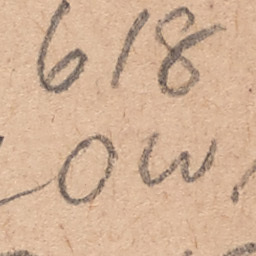 618
Ow.